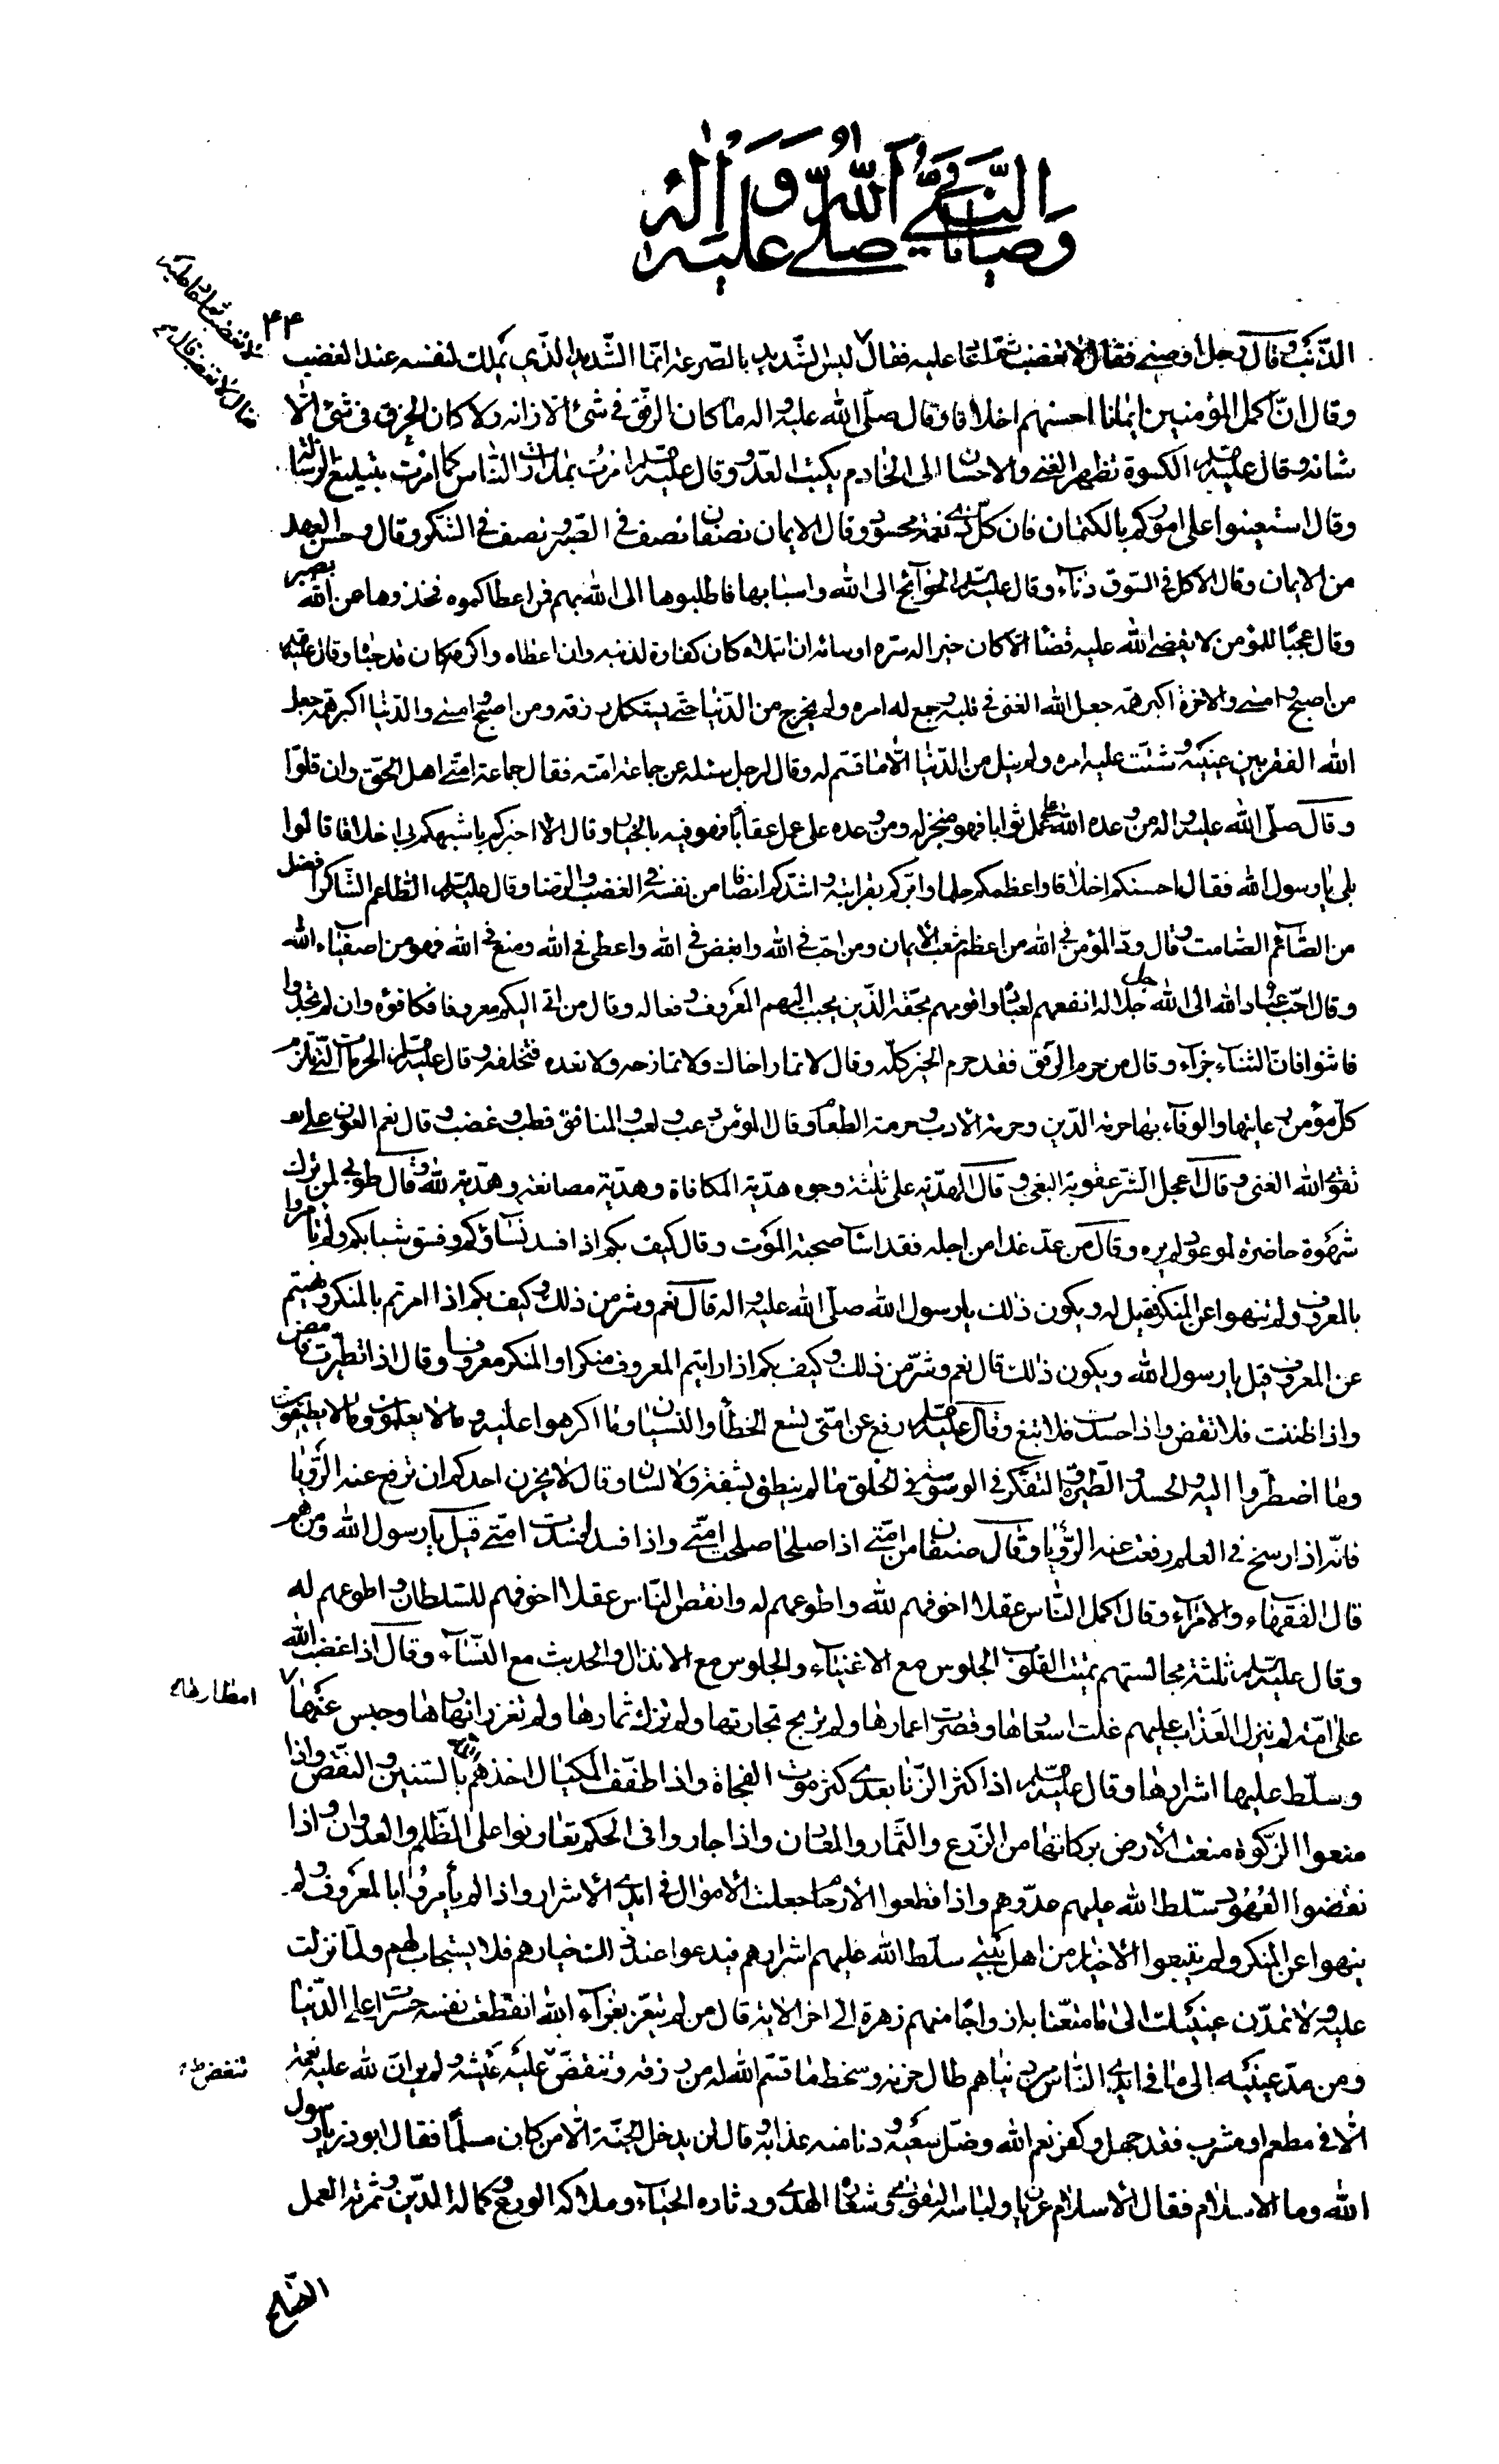 وصايا النبي صلى الله عليه واله
۴۴
الذئب وقال رجل اوصني فقال لا تغضب ثم اعاد عليه فقال ليس الشديد بالصرعة انما الشديد الذي يملك لنفسه عند الغضب
وقال ان اكمل المؤمنين ايمانا احسنهم اخلاقا وقال صلى الله عليه واله ما كان الرفق في شئ الا زانه ولا كان الخرق في شئ الا
شانه وقال عليه السلم الكسوة تظهر الغنى والاحسان الى الخادم يكبت العدو وقال عليه السلم امرت بمدارات الناس كما امرت بتبليغ الرسالة
وقال استعينوا على اموركم بالكتمان فان كل ذي نعمة محسود وقال الايمان نصفان نصف في الصبر ونصف في الشكر وقال حسن العهد
من الايمان وقال الاكل في السوق دناءة وقال عليه السلم الحوآئج الى الله واسبابها فاطلبوها الى الله بهم فمن اعطاكموه فخذوها عن الله بصبر
وقال عجبا للمؤمن لا يقضي الله عليه قضاء الا كان خيرا له سره او سائه ان ابتلاه كان كفارة لذنبه وان اعطاه واكرمه كان قد حباه وقال عليه السلم
من اصبح وامسى والاخرة اكبر همه جعل الله الغنى في قلبه وجمع له امره ولم يخرج من الدنيا حتى يستكمل رزقه ومن اصبح وامسى والدنيا اكبر همه جعل
الله الفقر بين عينيه وشتت عليه امره ولم ينل من الدنيا الا ما قسم له وقال لرجل سئله عن جماعة امته فقال جماعة امتي اهل الحق وان قلوا
وقال صلى الله عليه واله من وعده الله على عمل ثوابا فهو منجز له ومن وعده على عمل عقابا فهو فيه بالخيار وقال الا اخبركم باشبهكم بي اخلاقا قالوا
بلى يا رسول الله فقال احسنكم اخلاقا واعظمكم حلما وابركم بقرابته واشدكم انصافا من نفسه في الغضب والرضا وقال عليه السلم الطاعم الشاكر افضل
من الصائم الصامت وقال ود المؤمن في الله من اعظم شعب الايمان ومن احب في الله وابغض في الله واعطى في الله ومنع في الله فهو من اصفياء الله
وقال احب عباد الله الى الله جل جلاله انفعهم لعباده واقومهم بحقه الذين يحبب اليهم المعروف وفعاله وقال من اتى اليكم معروفا فكافؤه وان لم تجدوا
فاثنوا فان الثناء جزاء وقال من حرم الرفق فقد حرم الخير كله وقال لا تمار اخاك ولا تمازحه ولا تعده فتخلفه وقال عليه السلم الحرمات التي تلزم
كل مؤمن رعايتها والوفاء بها حرمة الدين وحرمة الادب وحرمة الطعام وقال المؤمن دعب ولعب والمنافق قطب وغضب وقال نعم العون على
تقوى الله الغنى وقال اعجل الشر عقوبة البغي وقال الهدية على ثلثة وجوه هدية المكافاة وهدية مصانعة وهدية لله وقال طوبى لمن ترك
شهوة حاضرة لموعود لم يره وقال من عد غدا من اجله فقد اساء صحبة الموت وقال كيف بكم اذا فسد نساؤكم وفسق شبابكم ولم تامروا
بالمعروف ولم تنهوا عن المنكر فقيل له ويكون ذلك يا رسول الله صلى الله عليه واله قال نعم وشر من ذلك وكيف بكم اذا امرتم بالمنكر ونهيتم
عن المعروف قيل يا رسول الله ويكون ذلك قال نعم وشر من ذلك وكيف بكم اذا رايتم المعروف منكرا والمنكر معروفا وقال اذا تطيرت فامض
واذا ظننت فلا تقض واذا حسدت فلا تبغ وقال عليه السلم رفع عن امتي تسع الخطأ والنسيان وما اكرهوا عليه وما لا يعلمون وما لا يطيقون
وما اضطروا اليه والحسد والطيرة والتفكر في الوسوسة في الخلق ما لم ينطق بشفة ولا لسان وقال لا يحزن احدكم ان ترفع عنه الرؤيا
فانه اذا رسخ في العلم رفعت عنه الرؤيا وقال صنفان من امتي اذا صلحا صلحت امتي واذا فسدا فسدت امتي قيل يا رسول الله ومن هم
قال الفقهاء والامراء وقال اكمل الناس عقلا اخوفهم لله واطوعهم له وانقص الناس عقلا اخوفهم للسلطان واطوعهم له
وقال عليه السلم ثلثة مجالستهم تميت القلوب الجلوس مع الاغنياء والجلوس مع الانذال والحديث مع النساء وقال اذا غضب الله
على امة لم ينزل العذاب عليهم غلت اسعارها وقصرت اعمارها ولم تربح تجارتها ولم تزك ثمارها ولم تغزر انهارها وحبس عنها
وسلط عليها اشرارها وقال عليه السلم اذا كثر الزنا بعدي كثر موت الفجأة واذا طفف المكيال اخذهم الله بالسنين والنقص واذا
منعوا الزكوة منعت الارض بركاتها من الزرع والثمار والمعادن واذا جاروا في الحكم تعاونوا على الظلم والعدوان واذا
نقضوا العهود سلط الله عليهم عدوهم واذا قطعوا الارحام جعلت الاموال في ايدي الاشرار واذا لم يأمروا بالمعروف ولم
ينهوا عن المنكر ولم يتبعوا الاخيار من اهل بيتي سلط الله عليهم اشرارهم فيدعوا عند ذلك خيارهم فلا يستجاب لهم ولما نزلت
عليه ولا تمدن عينيك الى ما متعنا به ازواجا منهم زهرة الى اخر الاية قال من لم يتعز بعزاء الله انقطعت نفسه حسرات على الدنيا
ومن مد عينيه الى ما في ايدي الناس من دنياهم طال حزنه وسخط ما قسم الله له من رزقه وتنقض عليه عيشه ولم ير ان لله عليه نعمة
الا في مطعم او مشرب فقد جهل وكفر نعم الله وضل سعيه ودنا منه عذابه وقال لن يدخل الجنة الا من كان مسلما فقال ابوذر يا رسول
الله وما الاسلام فقال الاسلام عريان ولباسه التقوى وشعاره الهدى ودثاره الحياء وملاكه الورع وكماله الدين وثمرته العمل
امطارها
تنغص
الصالح